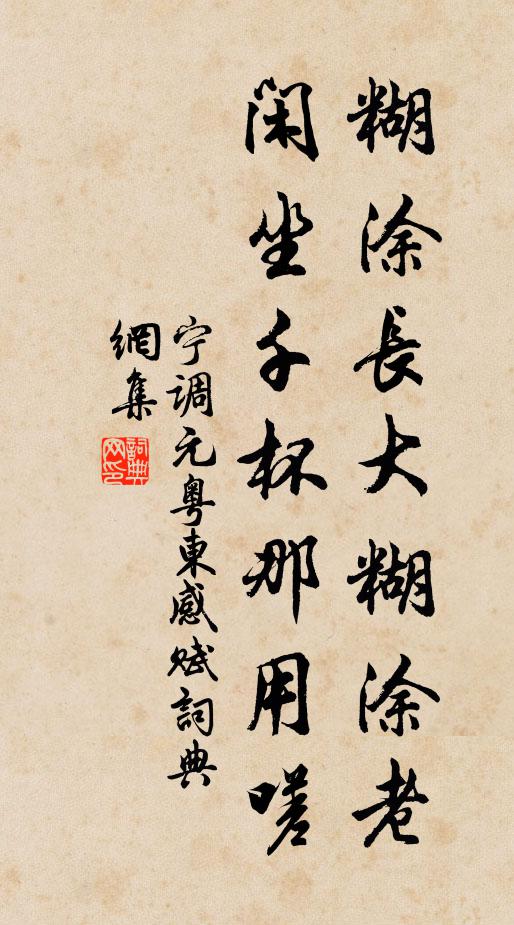 糊涂長大糊涂老
閑坐千杯那用嗟
宁調元粤東感赋詞典
網集
詞典网印